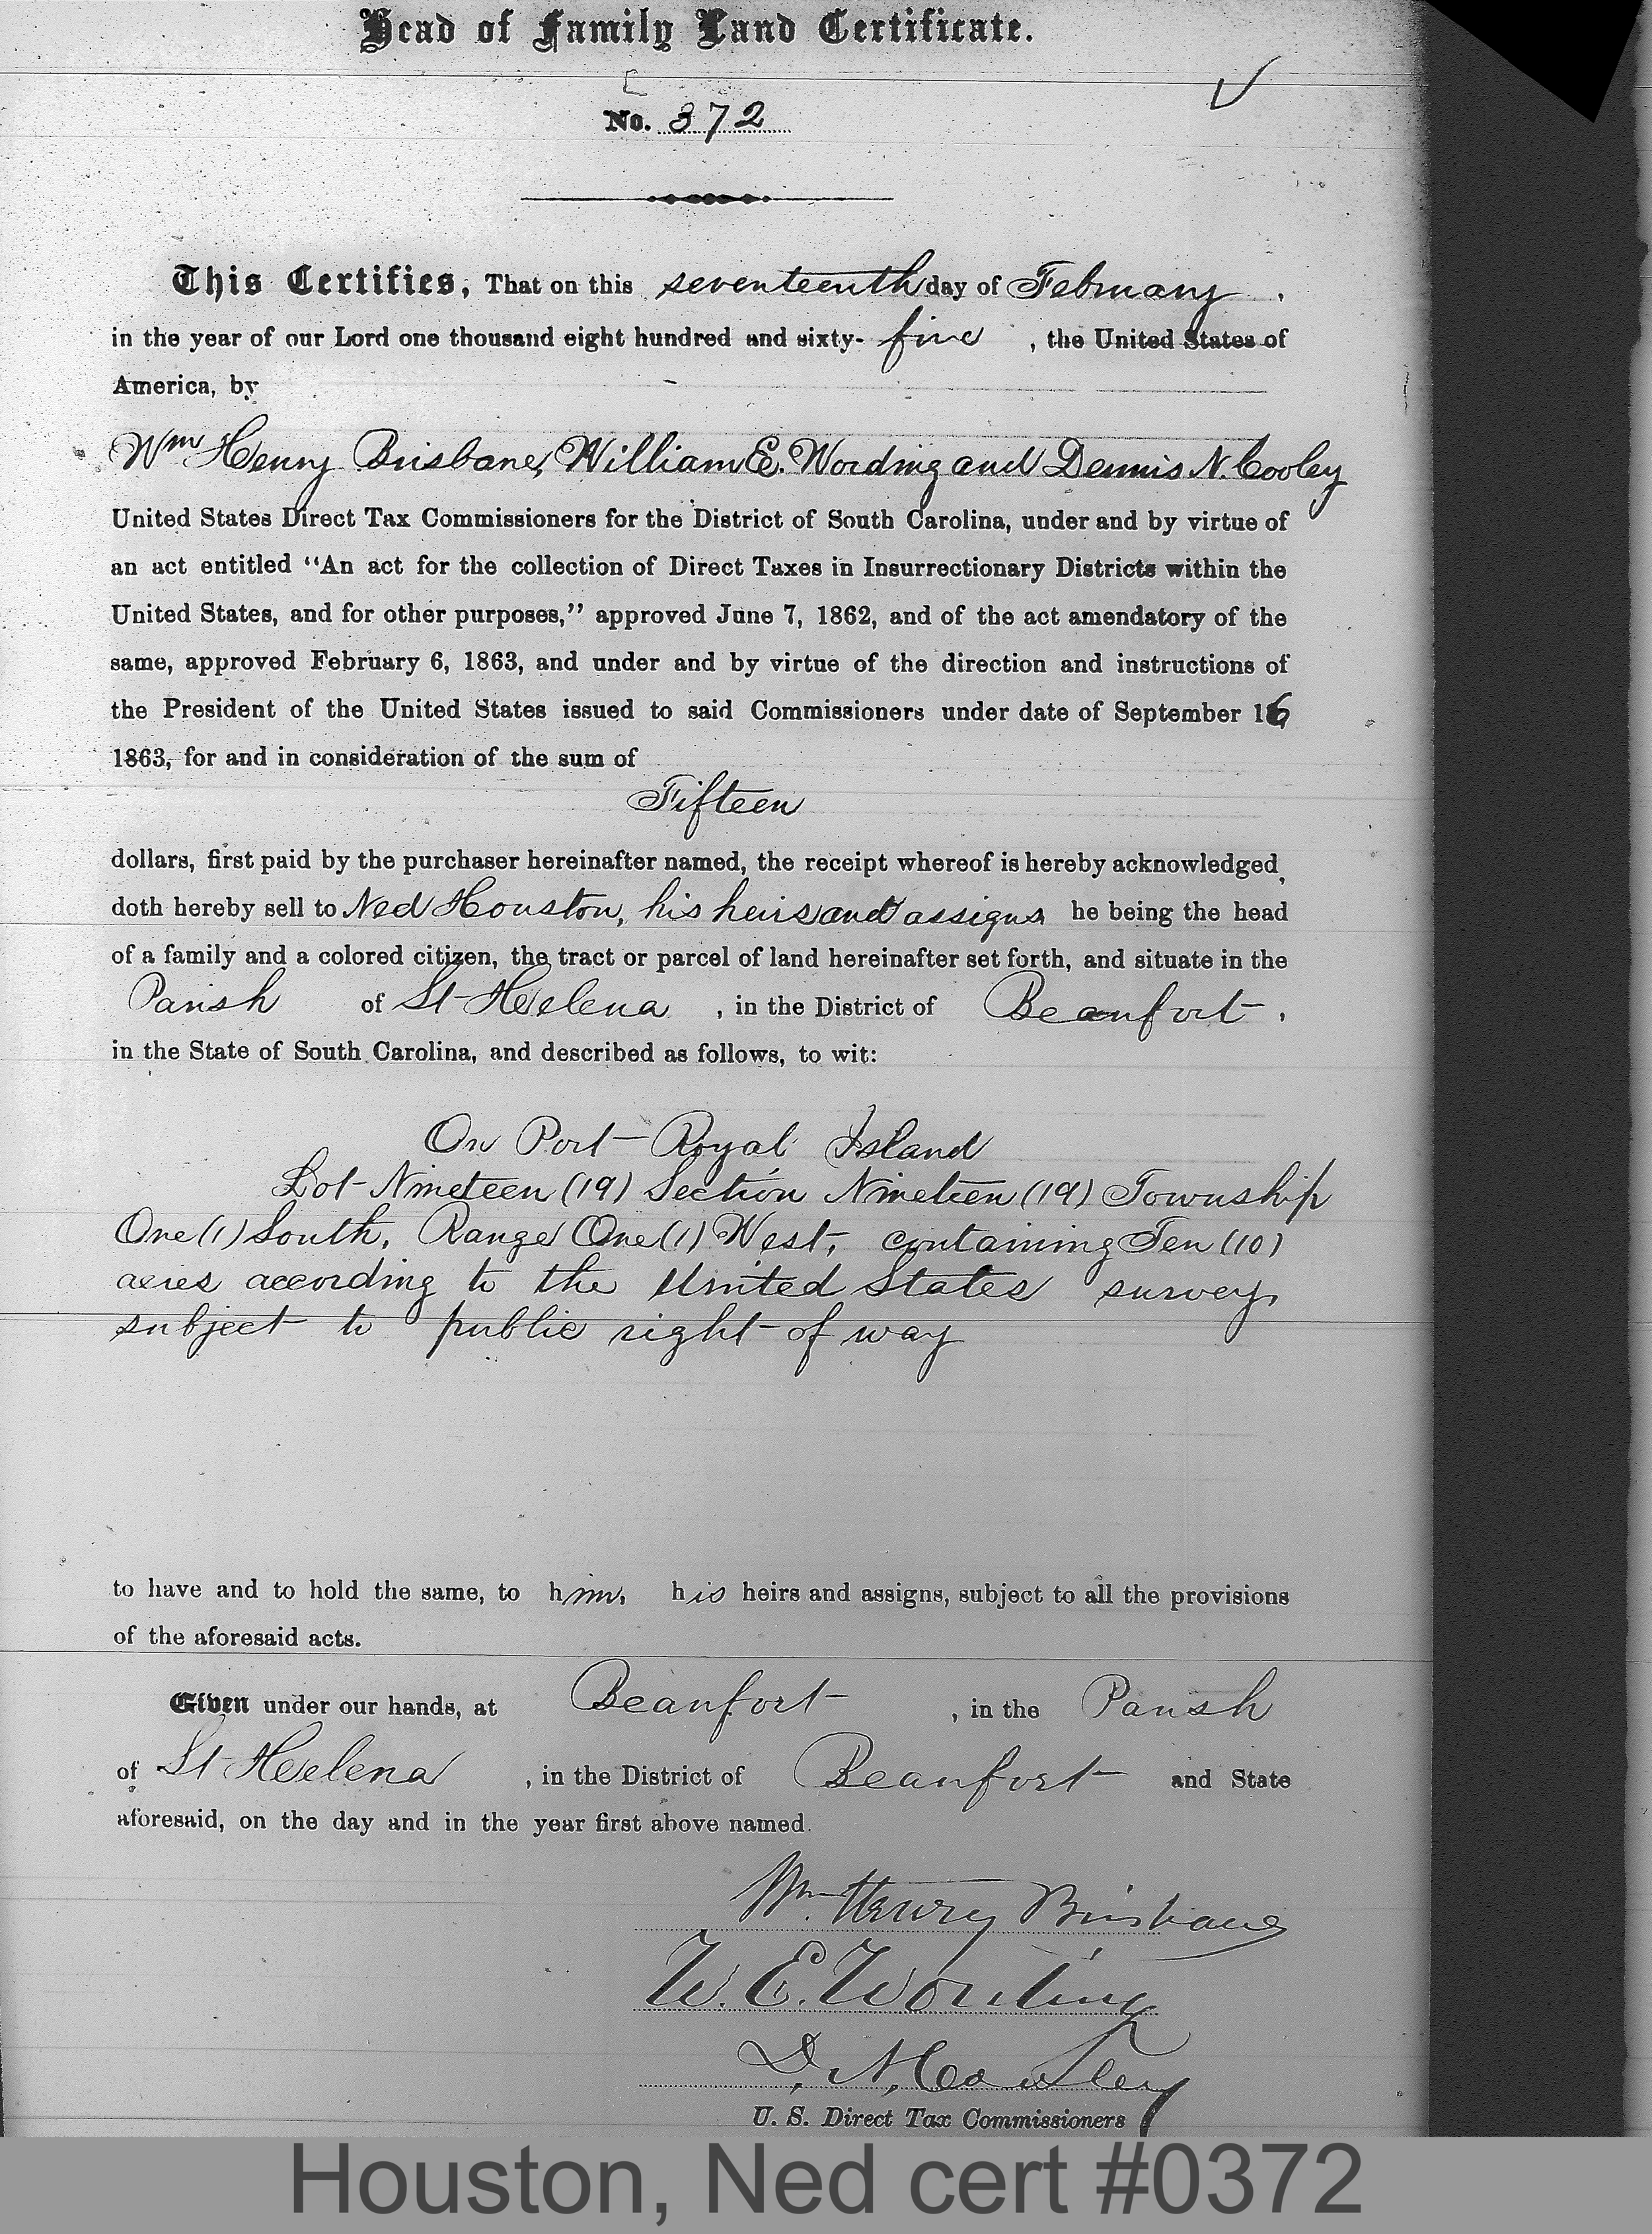 Head of Family Land Certificate.
No. 372
This Certifies, That on this seventeenth day of February,
in the year of our Lord one thousand eight hundred and sixty-five, the United States of
America, by
Wm Henry Brisbane, William E. Wording and Dennis N. Cooley
United States Direct Tax Commissioners for the District of South Carolina, under and by virtue of
an act entitled “An act for the collection of Direct Taxes in Insurrectionary Districts within the
United States, and for other purposes,” approved June 7, 1862, and of the act amendatory of the
same, approved February 6, 1863, and under and by virtue of the direction and instructions of
the President of the United States issued to said Commissioners under date of September 16
1863, for and in consideration of the sum of
Fifteen
dollars, first paid by the purchaser hereinafter named, the receipt whereof is hereby acknowledged,
doth hereby sell to Ned Houston, his heirs and assigns he being the head
of a family and a colored citizen, the tract or parcel of land hereinafter set forth, and situate in the
Parish of St Helena, in the District of Beaufort,
in the State of South Carolina, and described as follows, to wit:
On Port Royal Island
Lot Nineteen (19) Section Nineteen (19) Township
One (1) South, Range One (1) West, containing Ten (10)
acres according to the United States survey,
subject to public right of way
to have and to hold the same, to him, his heirs and assigns, subject to all the provisions
of the aforesaid acts.
Given under our hands, at Beaufort, in the Parish
of St Helena, in the District of Beaufort and State
aforesaid, on the day and in the year first above named.
Wm. Henry Brisbane
W. E. Wording
D. N. Cooley
U. S. Direct Tax Commissioners
Houston, Ned cert #0372